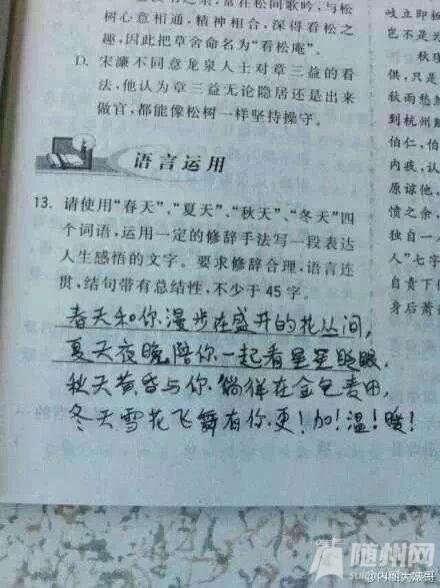 樵之书之余,常在松间歌吟,与松
树心意相通,精神相合,深得看松之
趣,因此把草舍命名为“看松庵”。
D. 宋濂不同意龙泉人士对章三益的看
法,他认为章三益无论隐居还是出来
做官,都能像松树一样坚持操守。
语言运用
13. 请使用“春天”、“夏天”、“秋天”、“冬天”四
个词语,运用一定的修辞手法写一段表达
人生感悟的文字。要求修辞合理,语言连
贯,结句带有总结性,不少于 45 字。
春天和你漫步在盛开的花丛间,
夏天夜晚陪你一起看星星眨眼,
秋天黄昏与你徜徉在金色麦田,
冬天雪花飞舞有你更!加!温!暖!
岐立即
岂不是为
秋瑾
供,只是
秋雨愁
到杭州
伯仁,伯
内疚,认
原谅他,
愤之余
独自一
人”七字
自责下
身后萧
随州网